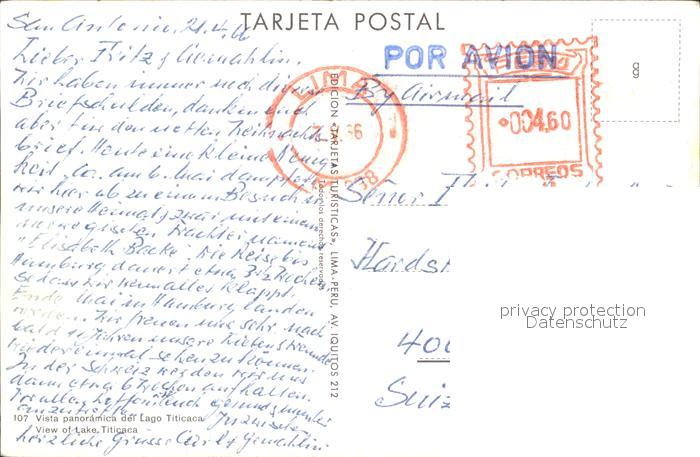 TARJETA POSTAL
POR AVION
By Airmail
LIMA
004,60
CORREOS
San Antonio, 21.4.
Lieber Fritz & Gemahlin.
Wir haben immer noch
Briefschulden, danken euch
aber für den netten Weihnachts
brief. Heute eine kleine
ca. am 6. Mai dampfen
wir hier ab zu einem Besuch in
unsere Heimat, zwar mit einem
Frachter namens
"Elisabeth Bolke". Die Reise bis
Hamburg dauert etwa 3½ Wochen
so dass wir wenn alles klappt
Ende Mai in Hamburg landen
werden. Wir freuen uns sehr nach
bald 11 Jahren unsere
wieder einmal sehen zu können
In der Schweiz werden wir uns
dann etwa 6 Wochen aufhalten.
hoffentlich gesund & munter
anzutreffen. Inzwischen
herzliche Grüsse Carl & Gemahlin
107 Vista panorámica del Lago Titicaca
View of Lake Titicaca
EDICION «TARJETAS TURISTICAS», LIMA-PERU, AV. IQUITOS 212
Todos los derechos reservados
Señor
Suiz
privacy protection
Datenschutz